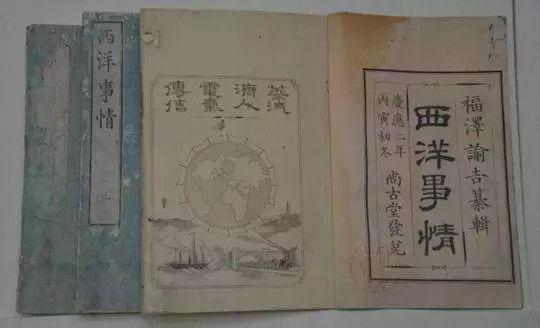 福澤諭吉纂輯
西洋事情
慶應二年
丙寅初冬
尚古堂發兌
蒸滊
濟人
電氣
傳信
西洋事情